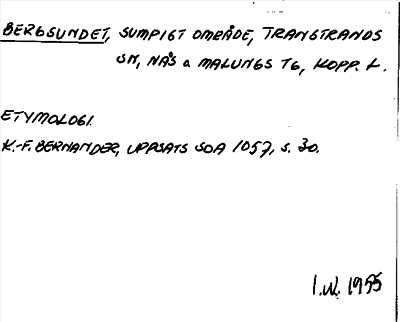 BERGSUNDET, SUMPIGT OMRÅDE, TRANSTRANDS
SN, NÅS O MALUNGS TG, KOPP. L.
ETYMOLOGI.
K.-F. BERNANDER, UPPSATS SOA 1057, S. 30.
I.W. 1955